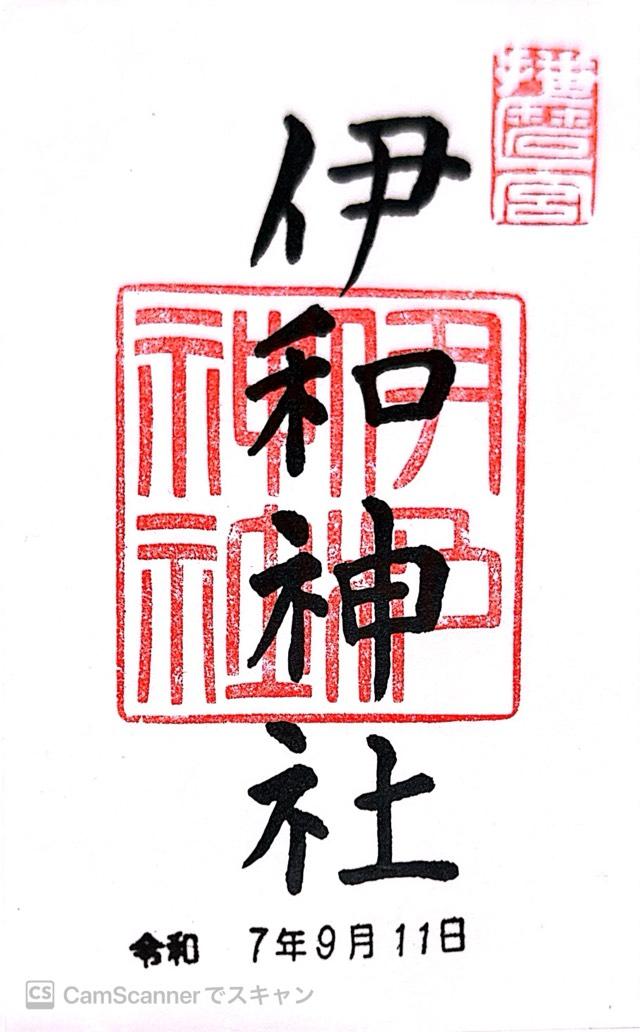 播磨一宮
伊和神社
伊和神社
令和 7年9月11日
CS CamScannerでスキャン